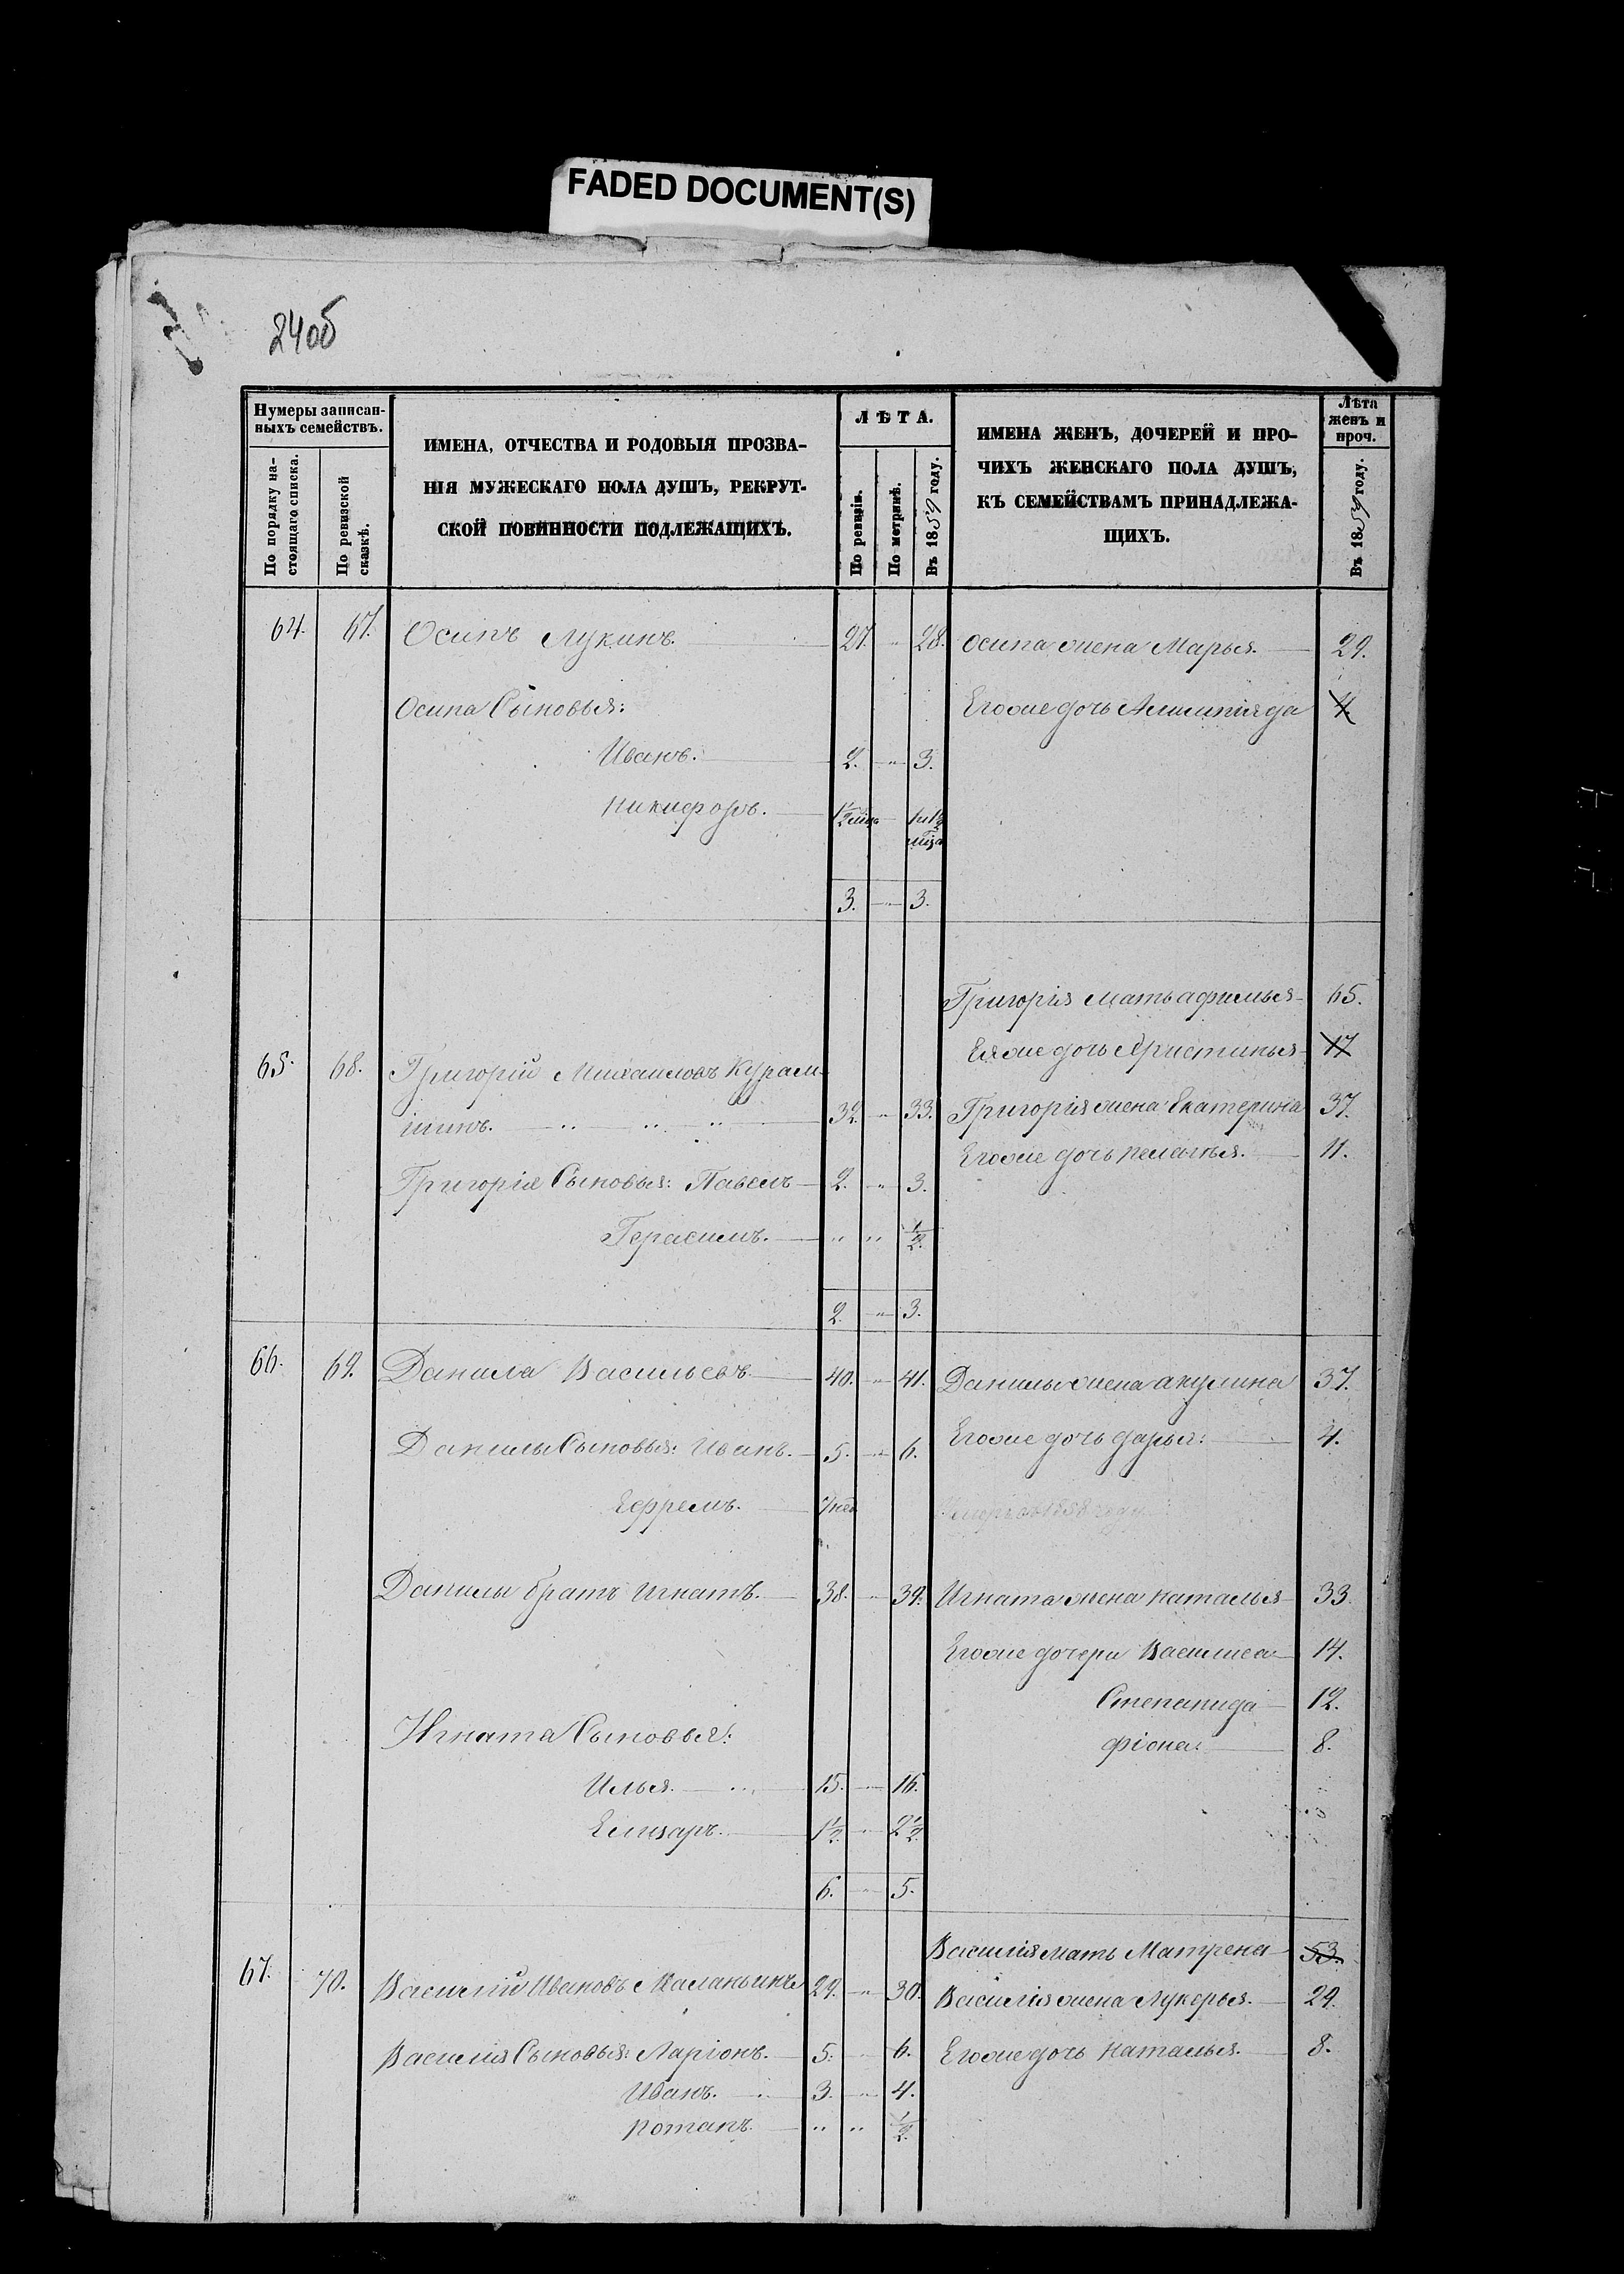 FADED DOCUMENT(S)
24об
Нумеры записан-
ныхъ семействъ.
По порядку на-
стоящаго списка.
По ревизской
сказкѣ.
ИМЕНА, ОТЧЕСТВА И РОДОВЫЯ ПРОЗВА-
НІЯ МУЖЕСКАГО ПОЛА ДУШЪ, РЕКРУТ-
СКОЙ ПОВИННОСТИ ПОДЛЕЖАЩИХЪ.
ЛѢТА.
По ревизіи.
По метрикѣ.
Въ 1859 году.
ИМЕНА ЖЕНЪ, ДОЧЕРЕЙ И ПРО-
ЧИХЪ ЖЕНСКАГО ПОЛА ДУШЪ,
КЪ СЕМЕЙСТВАМЪ ПРИНАДЛЕЖА-
ЩИХЪ.
Лѣта
женъ и
проч.
Въ 1859 году.
64. 67. Осипъ Лукинъ. 27. " 28. Осипа жена Марья. 29.
Осипа Сыновья: Егоже дочь 4.
Иванъ. 2. " 3.
Никифоръ. 1/2 мца 1 и 1/2
мца
3. " 3.
Григорія мать афимья 65.
Еяже дочь Христинья 17
65. 68. Григорій Михаиловъ Курам-
шинъ. 32. " 33. Григорія жена Екатерина 37.
Егоже дочь Пелагья. 11.
Григорія Сыновья: Павелъ 2. " 3.
Герасимъ. " " 1/2.
2. " 3.
66. 69. Данила Васильевъ 40. " 41. Данилы жена акулина 37.
Данилы Сыновья: Иванъ. 5. " 6. Егоже дочь дарья: 4.
Ефремъ. нед 1858 году
Данилы братъ Игнатъ. 38. " 39. Игната жена Наталья 33.
Егоже дочери Василиса 14.
Степанида 12.
Игната Сыновья: фіона: 8.
Илья. 15. " 16.
Елизаръ. 1 1/2. " 2 1/2.
6. " 5.
Василія мать Матрена 53.
67. 70. Василій Ивановъ Маланьинъ 29. " 30. Василія жена Лукерья. 29.
Василія Сыновья: Ларіонъ. 5. " 6. Егоже дочь Наталья. 8.
Иванъ. 3. " 4.
Потапъ. " " 1/2.